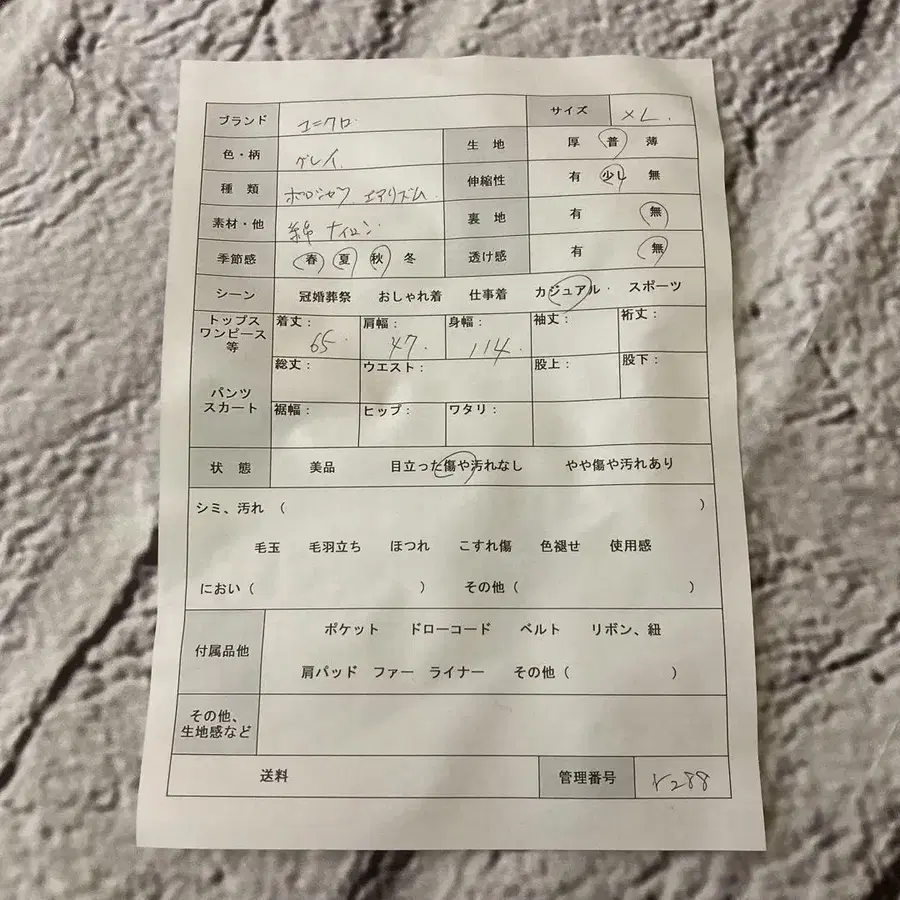 ブランド ユニクロ サイズ XL.
色・柄 グレイ 生 地 厚 普 薄
種 類 ポロシャツ エアリズム 伸縮性 有 少し 無
素材・他 綿 ナイロン 裏 地 有 無
季節感 春 夏 秋 冬 透け感 有 無
シーン 冠婚葬祭 おしゃれ着 仕事着 カジュアル・ スポーツ
トップス 着丈: 肩幅: 身幅: 袖丈: 裄丈:
ワンピース
等 65. 47. 114.
総丈: ウエスト: 股上: 股下:
パンツ
スカート 裾幅: ヒップ: ワタリ:
状 態 美品 目立った傷や汚れなし やや傷や汚れあり
シミ、汚れ ( )
毛玉 毛羽立ち ほつれ こすれ傷 色褪せ 使用感
におい ( ) その他 ( )
付属品他 ポケット ドローコード ベルト リボン、紐
肩パッド ファー ライナー その他 ( )
その他、
生地感など
送料 管理番号 288